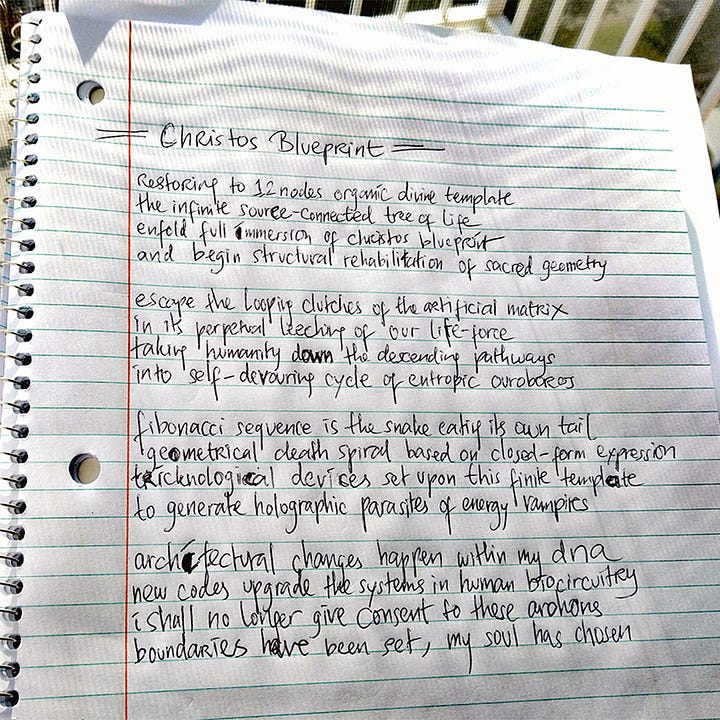 Christos Blueprint
Restoring to 12 nodes organic divine template
the infinite source-connected tree of life
enfold full immersion of christos blueprint
and begin structural rehabilitation of sacred geometry
escape the looping clutches of the artificial matrix
in its perpetual leeching of our life-force
taking humanity down the descending pathways
into self-devouring cycle of entropic ouroboros
fibonacci sequence is the snake eating its own tail
geometrical death spiral based on closed-form expression
tricknological devices set upon this finite template
to generate holographic parasites of energy vampires
architectural changes happen within my dna
new codes upgrade the systems in human biocircuitry
i shall no longer give consent to these archons
boundaries have been set, my soul has chosen